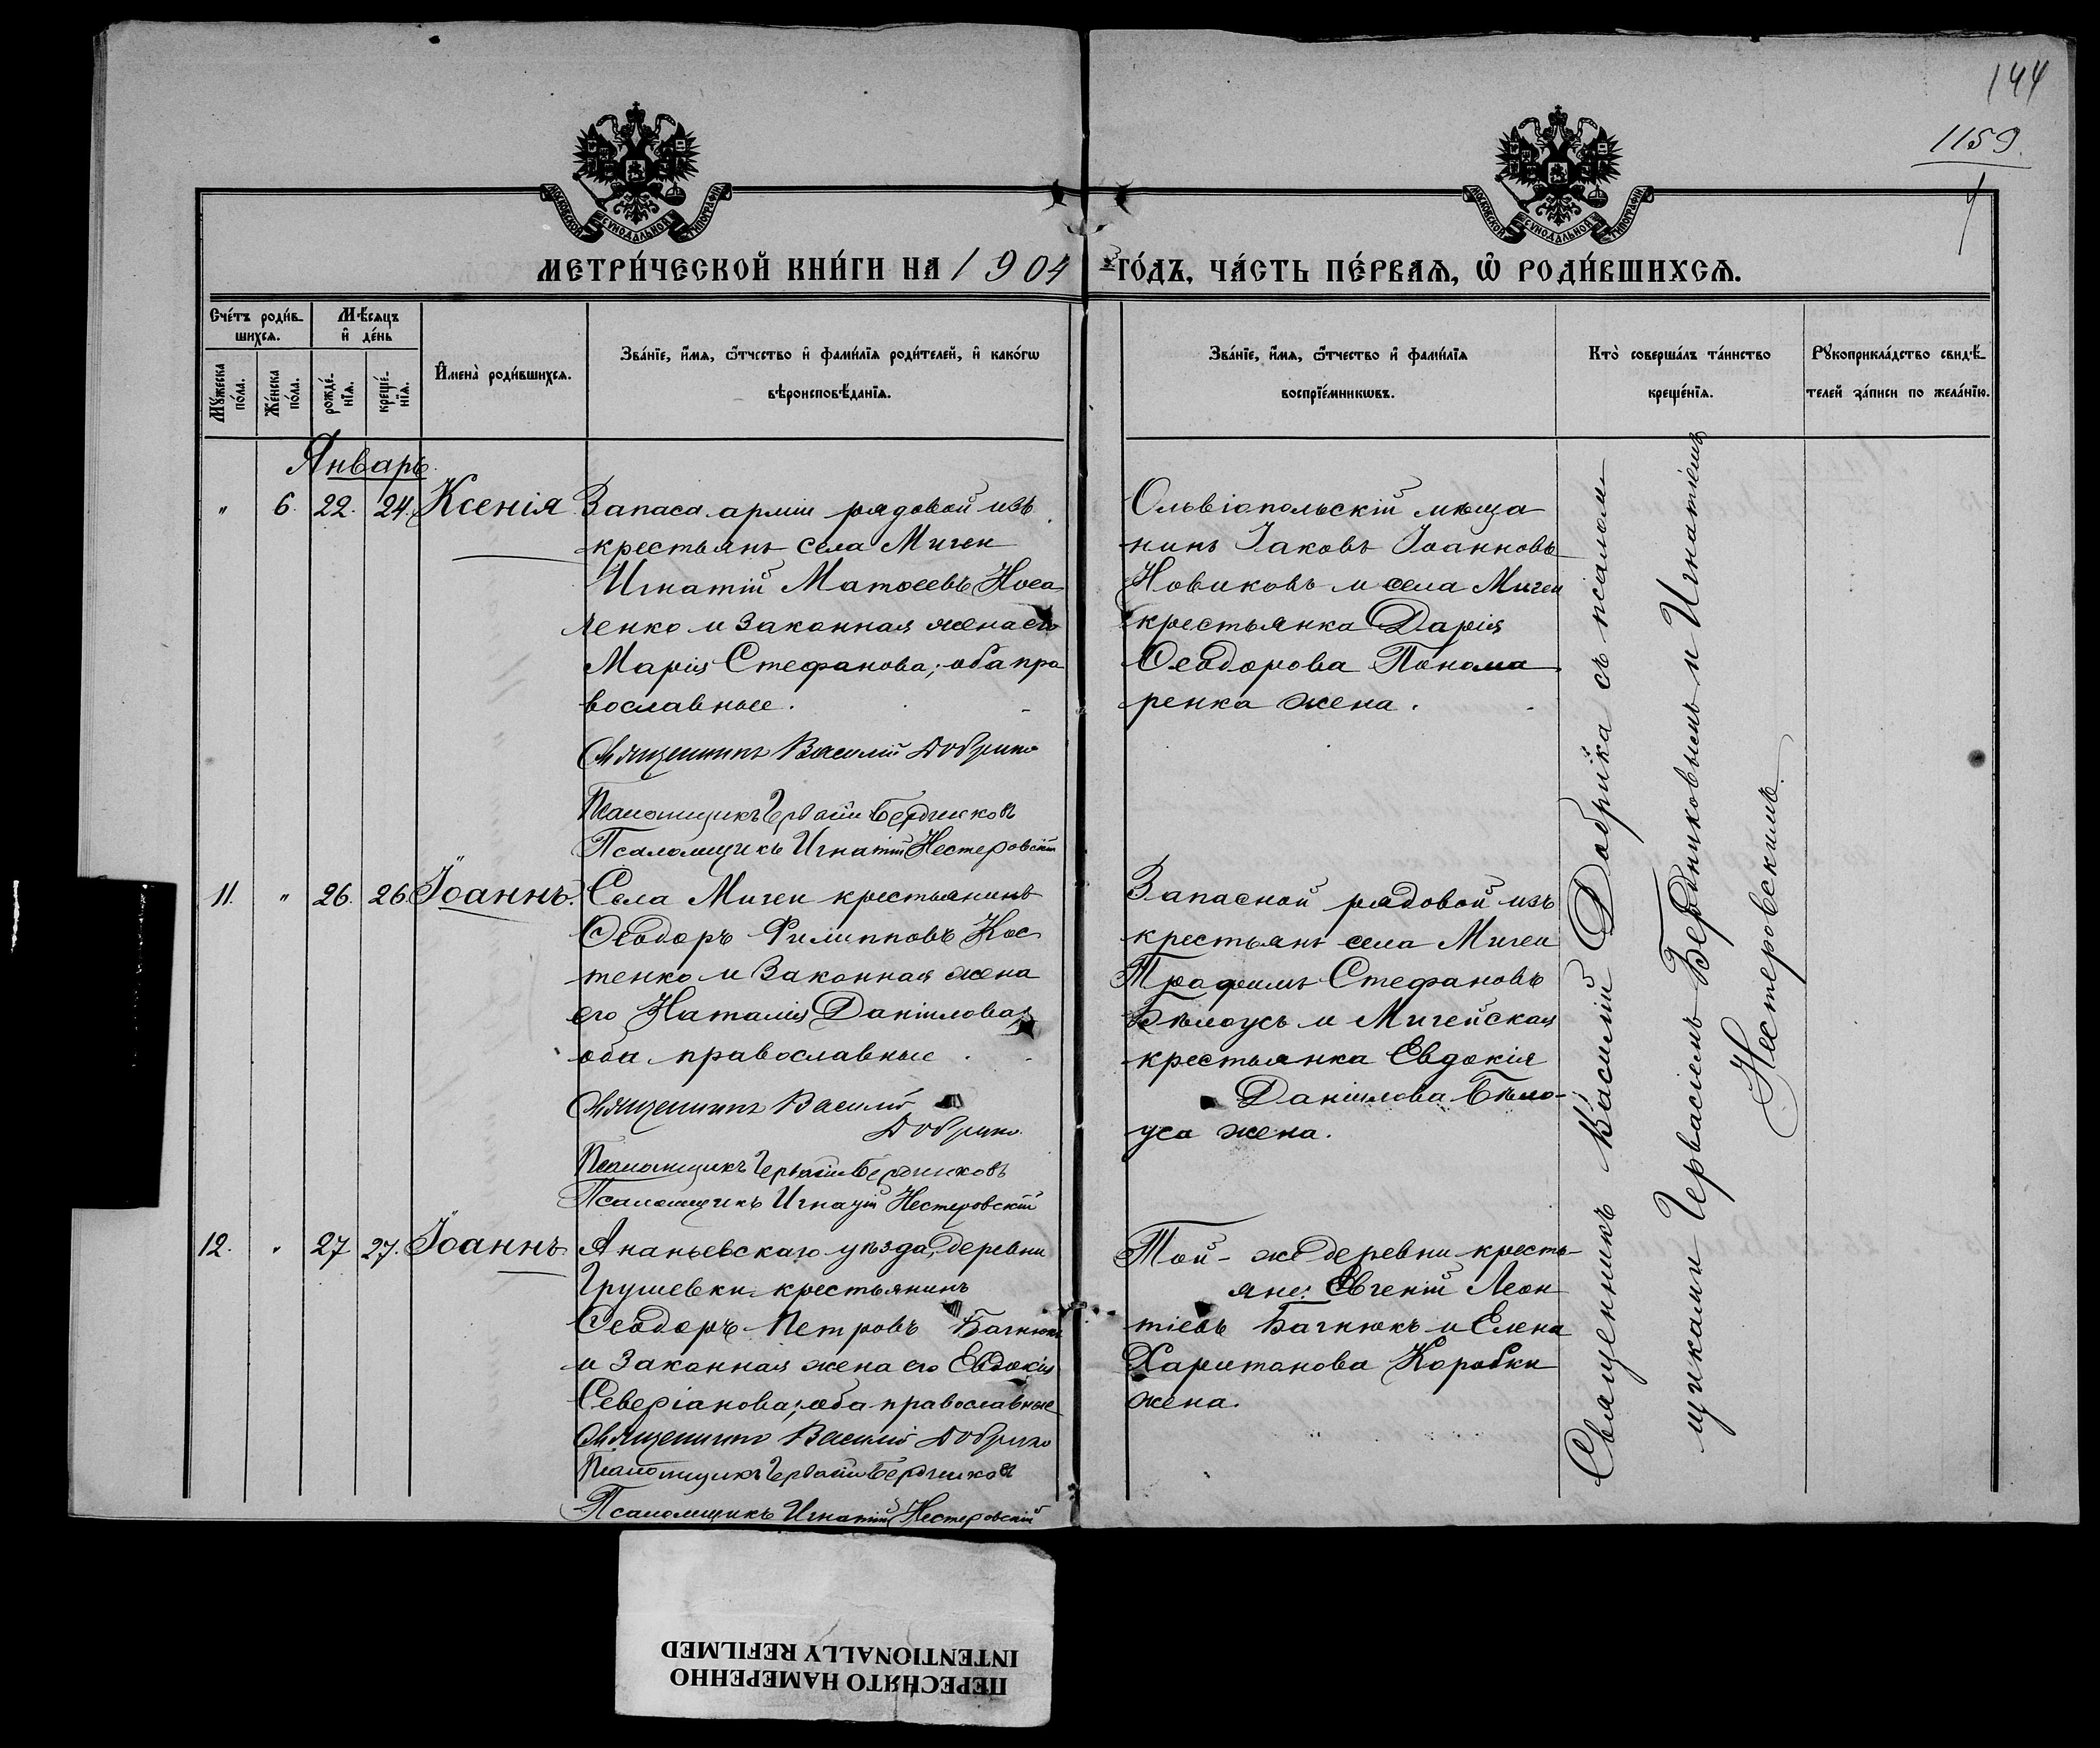 144
1159.
МОСКОВСКОЙ СѴНОДАЛЬНОЙ ТИПОГРАФІИ
МОСКОВСКОЙ СѴНОДАЛЬНОЙ ТИПОГРАФІИ
МЕТРИ́ЧЕСКОЙ КНИ́ГИ НА 1904
ГО́ДЪ, ЧА́СТЬ ПЕ́РВАЯ, Ѡ РОДИ́ВШИХСЯ.
Сче́тъ роди́в-
шихся.
Мѣ́сяцъ
и҆ де́нь
Мꙋ́жеска
по́ла.
Же́нска
по́ла.
рожде́-
нїя.
креще́-
нїя.
И҆мена̀ роди́вшихся.
Зва́нїе, и҆́мя, ѻ҆́тчество и҆ фами́лїя роди́телей, и҆ како́гѡ
вѣроисповѣ́данїя.
Зва́нїе, и҆́мя, ѻ҆́тчество и҆ фами́лїя
воспрїе́мникѡвъ.
Кто̀ соверша́лъ та́инство
креще́нїя.
Рꙋкоприкла́дство свидѣ́-
телей за́писи по жела́нїю.
Январь.
" 6. 22. 24. Ксенія
Запаса арміи рядовой изъ
крестьянъ села Мигеи
Игнатій Матѳеевъ Носа-
ленко и законная жена его
Марія Стефанова; оба пра-
вославные.
Священникъ Василій Добрика
Псаломщикъ Гервасій Бердниковъ
Псаломщикъ Игнатій Нестеровскій
Ольвіопольскій мѣща-
нинъ Іаковъ Іоанновъ
Новиковъ и села Мигеи
крестьянка Дарія
Ѳеодорова Понома-
ренка жена.
11. " 26. 26. Іоаннъ.
Села Мигеи крестьянинъ
Ѳеодоръ Филипповъ Кос-
тенко и законная жена
его Наталія Даніилова;
оба православные
Священникъ Василій
Добрика
Псаломщикъ Гервасій Бердниковъ
Псаломщикъ Игнатій Нестеровскій
Запасной рядовой изъ
крестьянъ села Мигеи
Трофимъ Стефановъ
Бѣлоусъ и Мигейская
крестьянка Евдокія
Даніилова Бѣло-
уса жена.
12. " 27. 27. Іоаннъ
Ананьевскаго уѣзда, деревни
Грушевки крестьянинъ
Ѳеодоръ Петровъ Багнюкъ
и законная жена его Евдокія
Северіанова; оба православные
Священникъ Василій Добрика
Псаломщикъ Гервасій Бердниковъ
Псаломщикъ Игнатій Нестеровскій
Той-же деревни кресть-
яне: Евгеній Леон-
тіевъ Багнюкъ и Елена
Харитонова Коробки
жена.
Священникъ Василій Добрика съ псалом-
щиками Гервасіемъ Бердниковымъ и Игнатіемъ
Нестеровскимъ.
ПЕРЕСНЯТО НАМЕРЕННО
INTENTIONALLY REFILMED